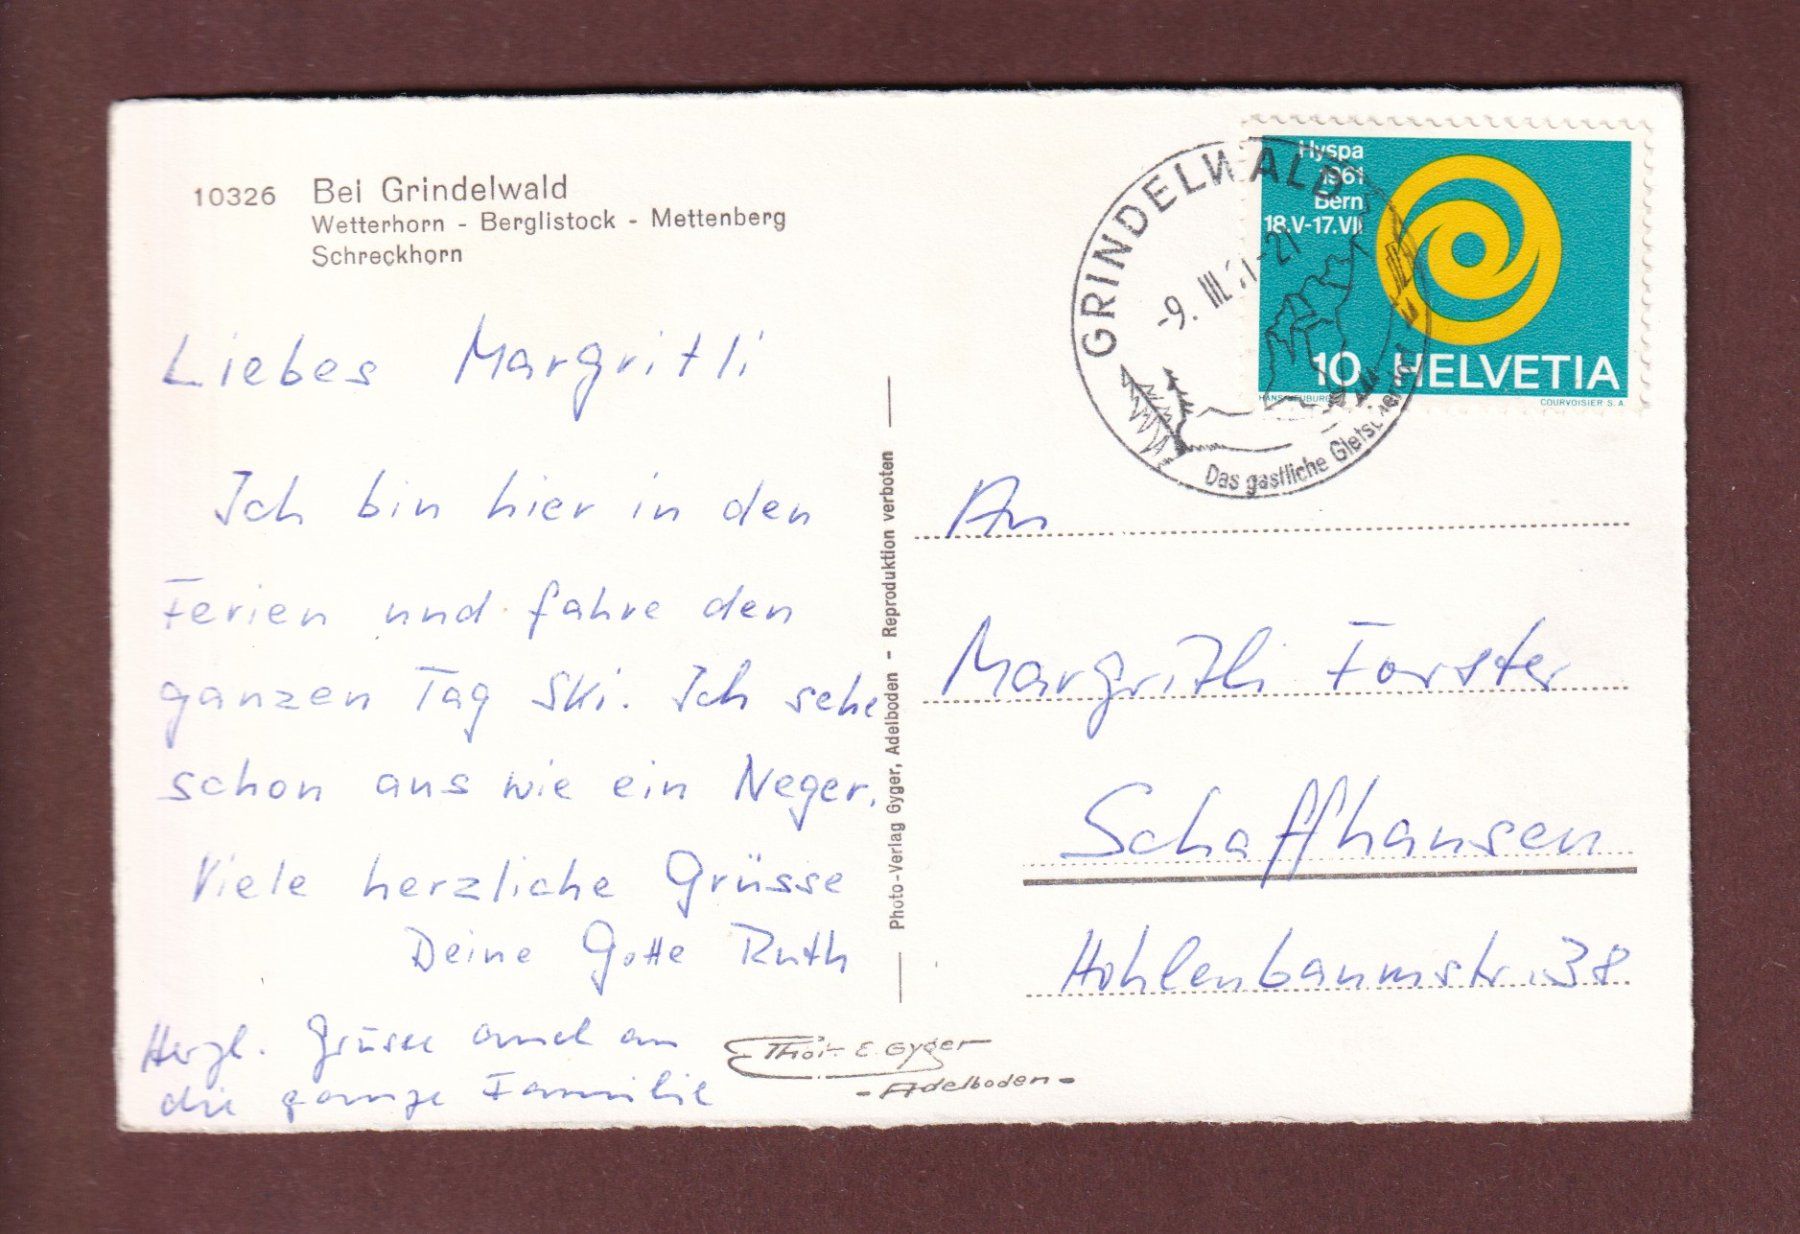 10326 Bei Grindelwald
Wetterhorn - Berglistock - Mettenberg
Schreckhorn
Liebes Margritli
Ich bin hier in den
Ferien und fahre den
ganzen Tag Ski. Ich sehe
schon aus wie ein Neger.
Viele herzliche Grüsse
Deine Gotte Ruth
Herzl. Grüsse auch an
die ganze Familie
Photo-Verlag Gyger, Adelboden - Reproduktion verboten
E. Gyger
- Adelboden -
GRINDELWALD
-9. III.
Das gastliche
Hyspa
1961
Bern
18.V-17.VII
10 HELVETIA
COURVOISIER S.A.
An
Margritli Forster
Schaffhausen
Hohlenbaumstr. 38